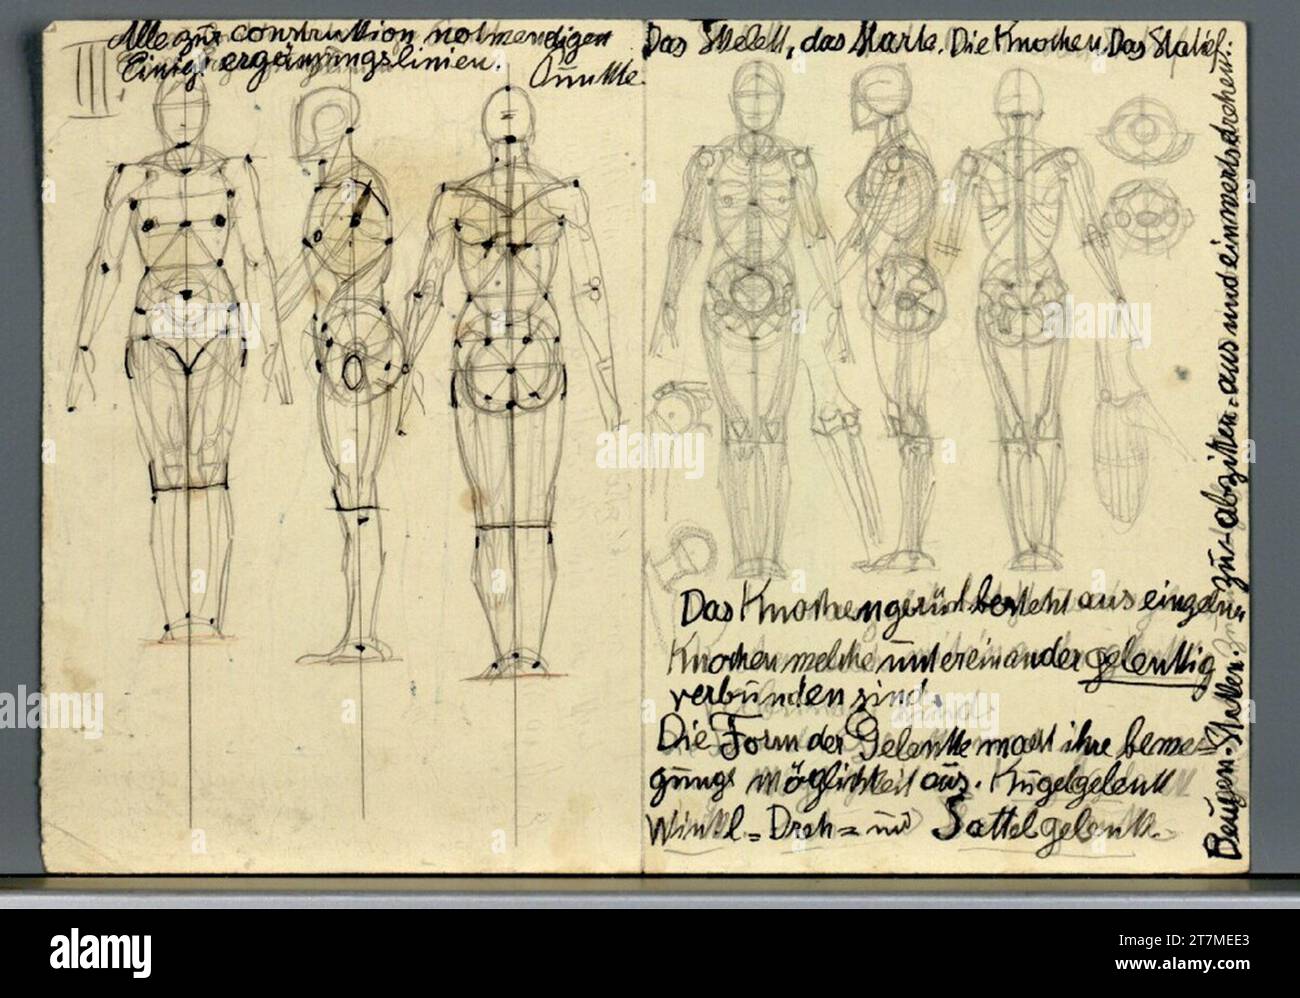 III
Alle zur construktion notwendigen
Einig. ergänzungslinien. Punkte.
Das Skelett, das Starke. Die Knochen. Das Stativ.
Das Knochengerüst besteht aus einzelnen
Knochen welche untereinander gelenkig
verbunden sind.
Die Form der Gelenke macht ihre bewe-
gungs möglichkeit aus. Kugelgelenk
Winkl = Dreh = und Sattelgelenk.
Beugen. Strecken. zu- abziehen. aus und einwertsdrehen.
alamy
Image ID: 2T7MEE3
www.alamy.com